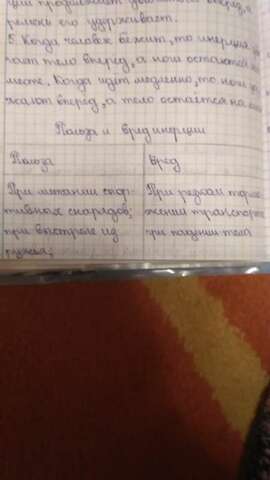 ции продолжает двигаться вперед, а
ремень его удерживает.
5. Когда человек бежит, то инерция
тело вперед, а ноги остаются
месте. Когда идут медленно, то ноги
вперед, а тело остаётся на
Польза и вред инерции
Польза
Вред
При метании спор-
тивных снарядов;
при выстреле из
ружья;
При резком тормо-
жении транспорта
при падении тела